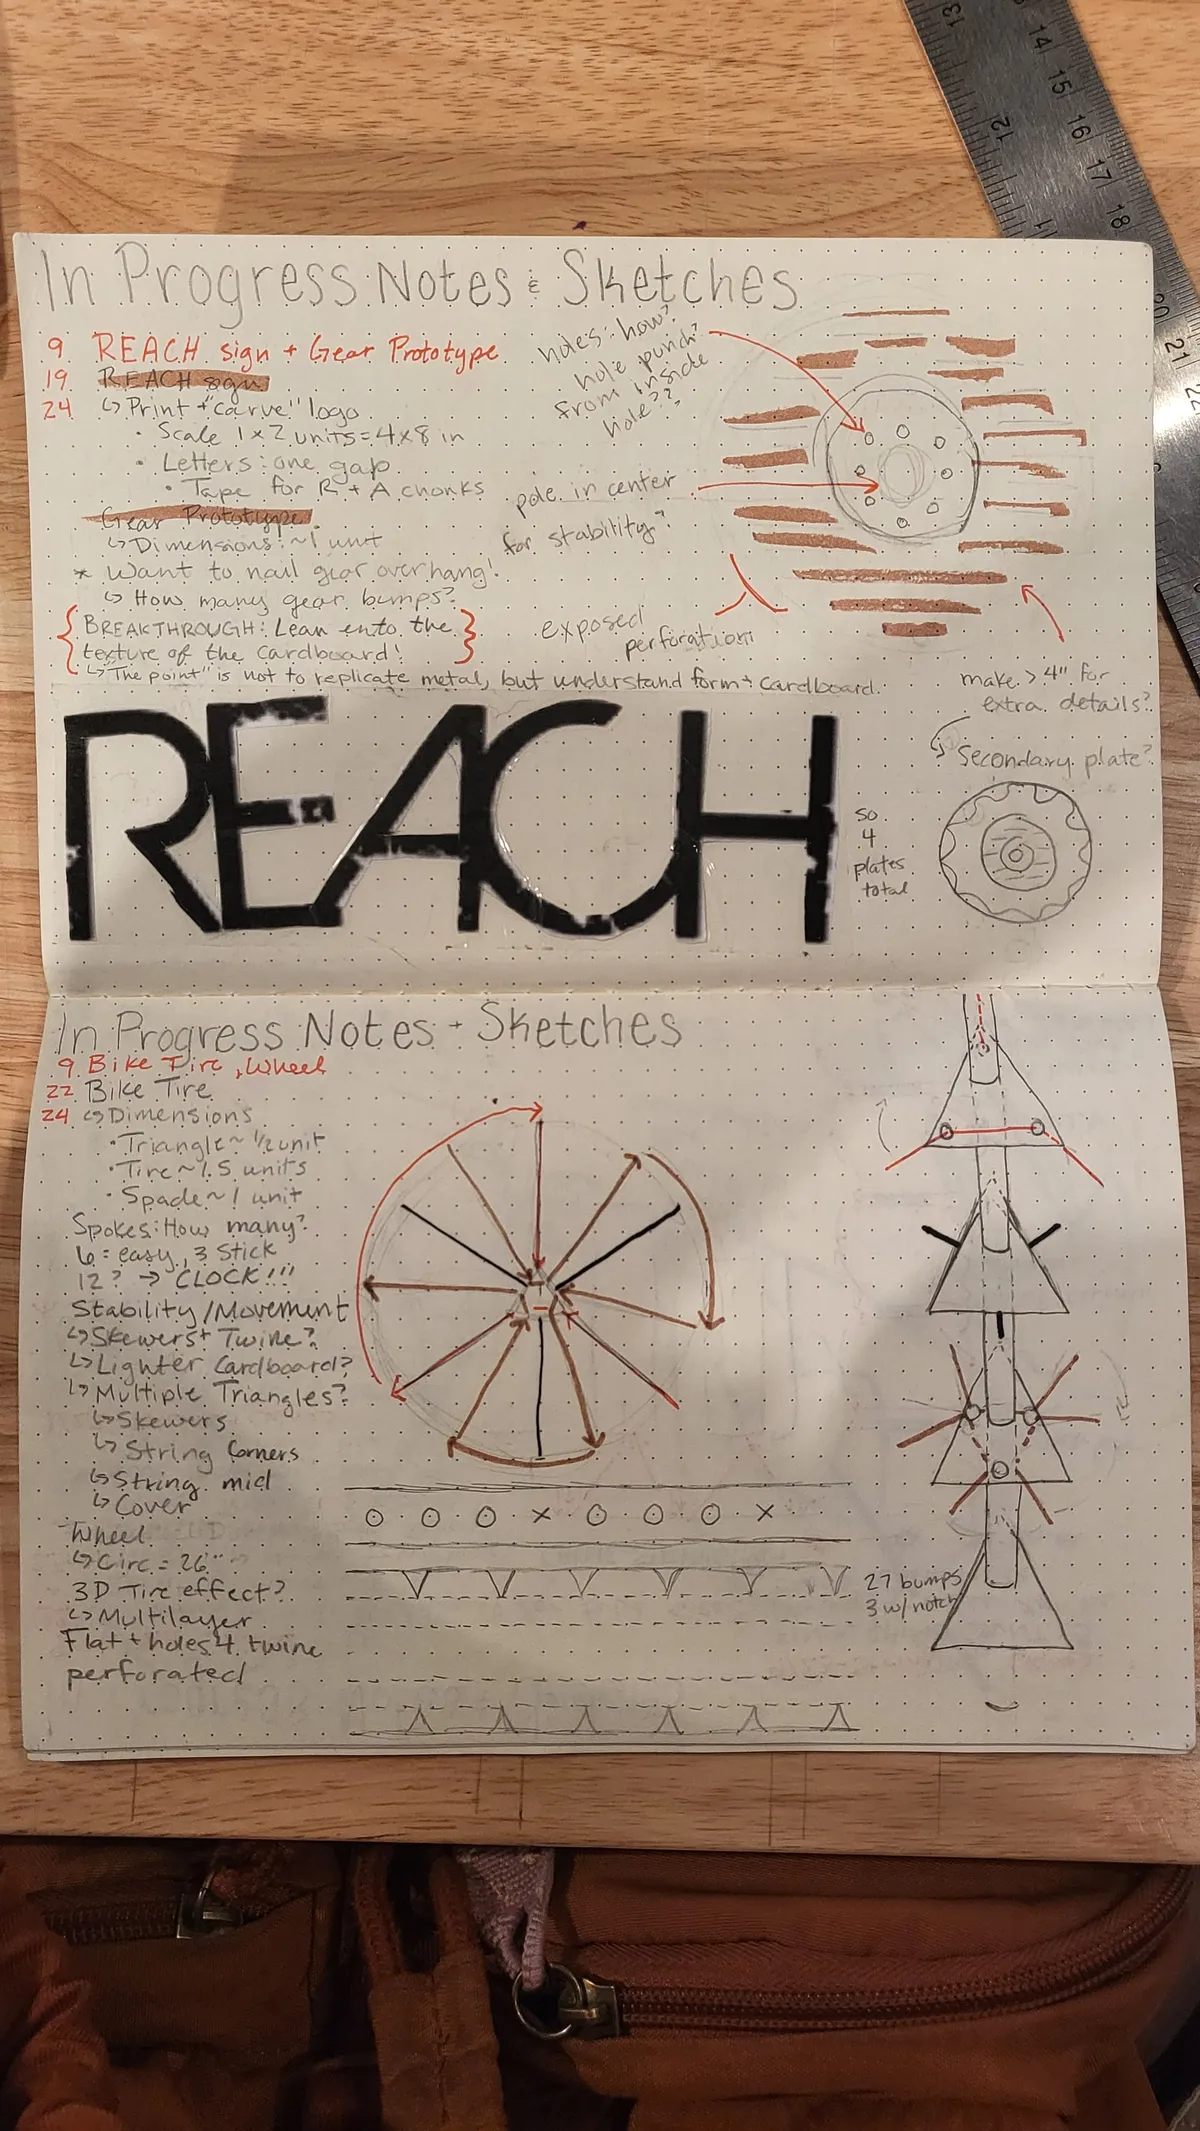 In Progress Notes & Sketches
9 REACH sign + Gear Prototype
19 REACH sign
24 ↳ Print + "carve" logo
• Scale 1x2 units = 4x8 in
• Letters: one gap
• Tape for R + A chonks
Gear Prototype
↳ Dimensions: ~1 unit
* Want to nail gear overhang!
↳ How many gear bumps?
{BREAKTHROUGH: Lean into the
texture of the cardboard!}
↳ "The point" is not to replicate metal, but understand form + cardboard.
holes: how?
hole punch?
from inside
hole??
pole in center
for stability?
exposed
perforation
make > 4" for
extra details?
Secondary plate?
so
4
plates
total
REACH
In Progress Notes + Sketches
9 Bike Tire, Wheel
22 Bike Tire
24 ↳ Dimensions
• Triangle ~ 1/2 unit
• Tire ~ 1.5 units
• Spade ~ 1 unit
Spokes: How many?
6 = easy, 3 stick
12? → CLOCK!!!
Stability/Movement
↳ Skewers + Twine?
↳ Lighter Cardboard?
↳ Multiple Triangles?
↳ Skewers
↳ String Corners
↳ String mid
↳ Cover
Wheel
↳ Circ = 26"
3D Tire effect?
↳ Multilayer
Flat + holes 4 twine
perforated
O O O x O O O x
27 bumps
3 w/ notch
13 14 15 16 17 18
12 11
20 21 22